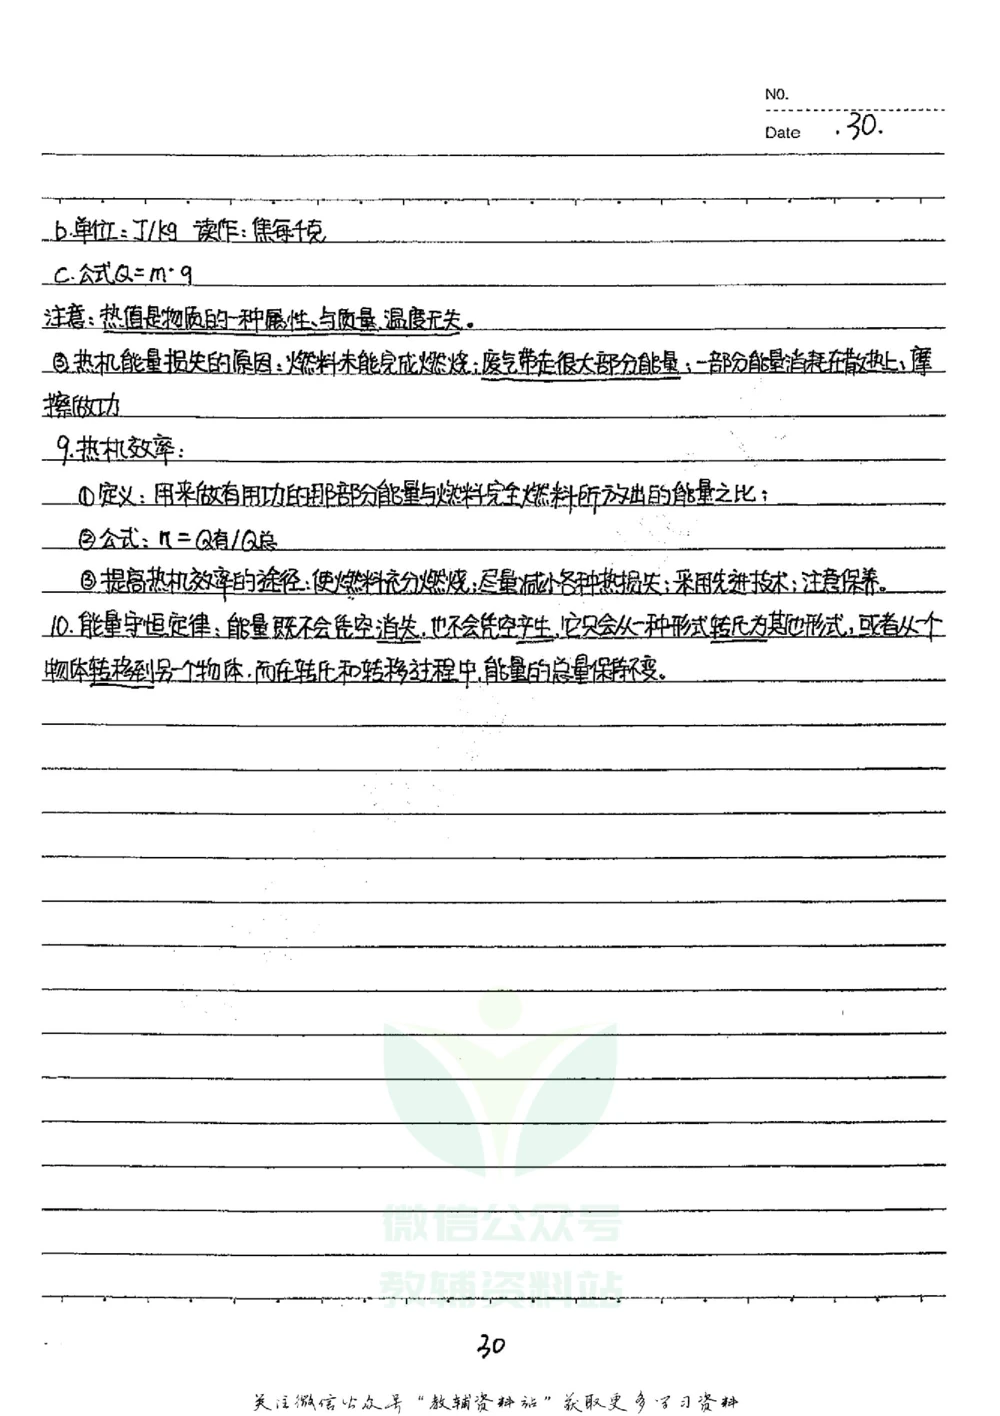 NO.
Date .30.
b.单位：J/kg 读作：焦每千克
c.公式Q=m·q
注意：热值是物质的一种属性、与质量、温度无失。
③热机能量损失的原因：燃料未能完成燃烧；废气带走很大部分能量；一部分能量消耗在散热上、摩
擦做功
9.热机效率：
①定义：用来做有用功的那部分能量与燃料完全燃料所放出的能量之比；
②公式：η=Q有/Q总
③提高热机效率的途径：使燃料充分燃烧；尽量减小各种热损失；采用先进技术；注意保养。
10.能量守恒定律：能量既不会凭空消失，也不会凭空产生，它只会从一种形式转氏为其他形式，或者从一个
物体转移到另一个物体，而在转氏和转移过程中，能量的总量保持不变。
微信公众号
教辅资料站
30
关注微信公众号“教辅资料站”获取更多学习资料